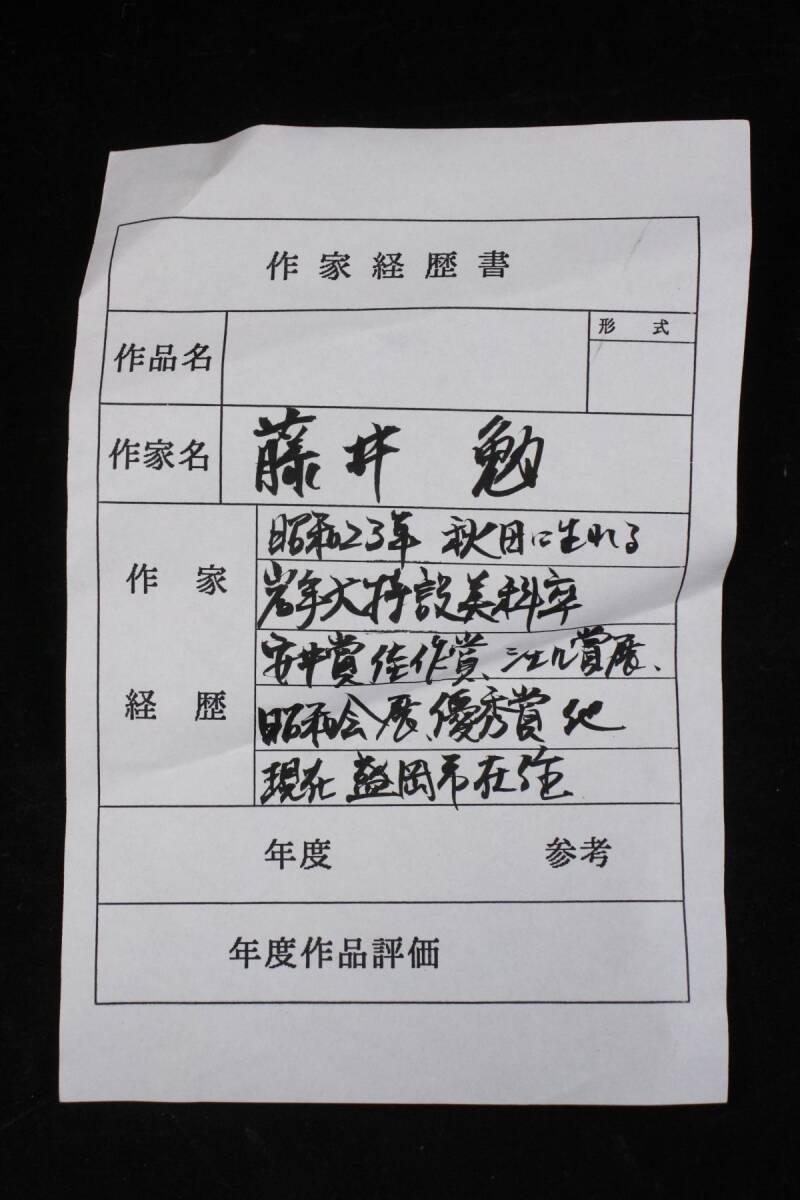 作家経歴書
作品名
形式
作家名 藤井 勉
作家経歴
昭和23年 秋田に生れる
岩手大特設美科卒
安井賞佳作賞、シェル賞展、
昭和会展、優秀賞他
現在 盛岡市在住
年度 参考
年度作品評価